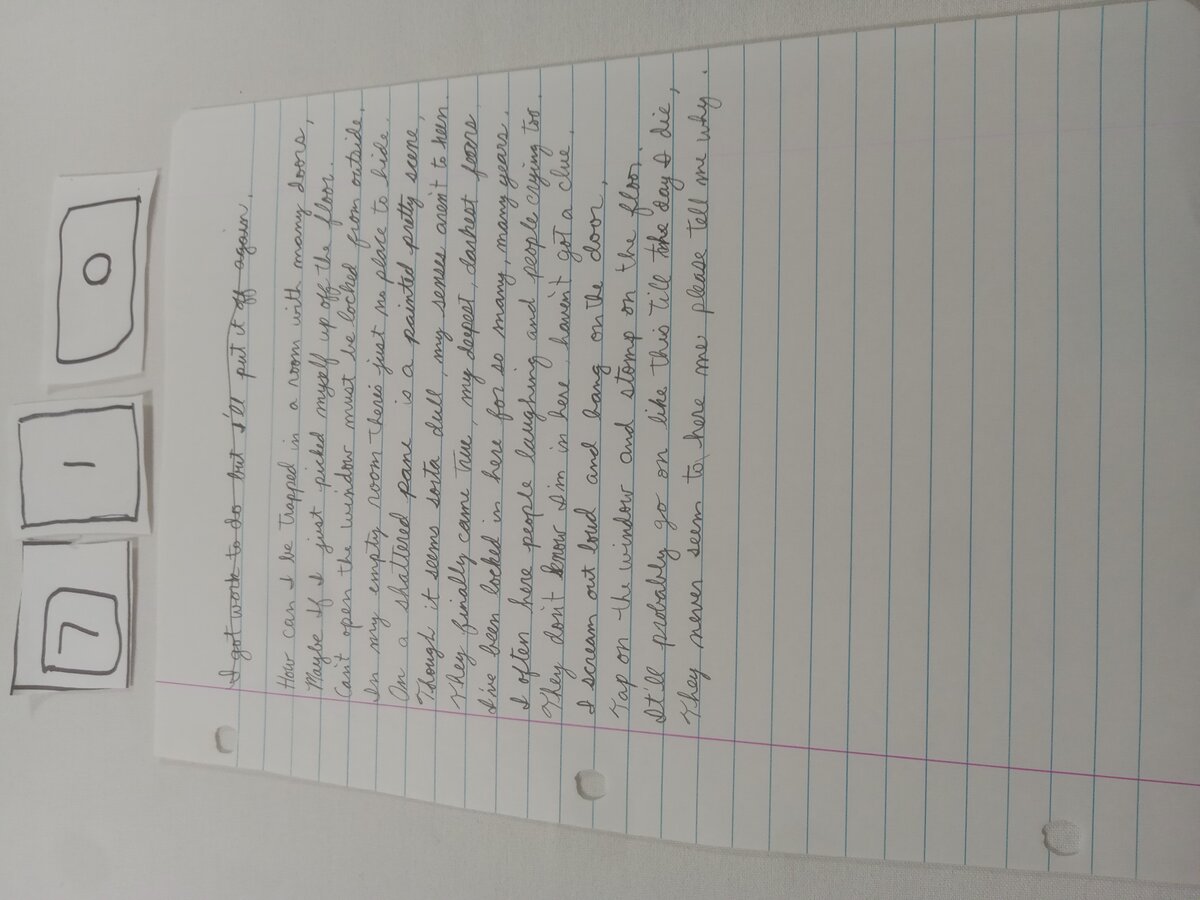 7 1 0
I got work to do but I'll put it off again.
How can I be trapped in a room with many doors,
Maybe If I just picked myself up off the floor.
Can't open the window must be locked from outside,
In my empty room theres just no place to hide.
On a shattered pane is a painted pretty scene,
Though it seems sorta dull, my senses aren't to keen.
They finally came true, my deepest, darkest fears,
I've been locked in here for so many, many years.
I often here people laughing and people crying too.
They don't know I'm in here, haven't got a clue.
I scream out loud and bang on the door,
Tap on the window and stomp on the floor.
It'll probably go on like this till the day I die,
They never seem to here me please tell me why.